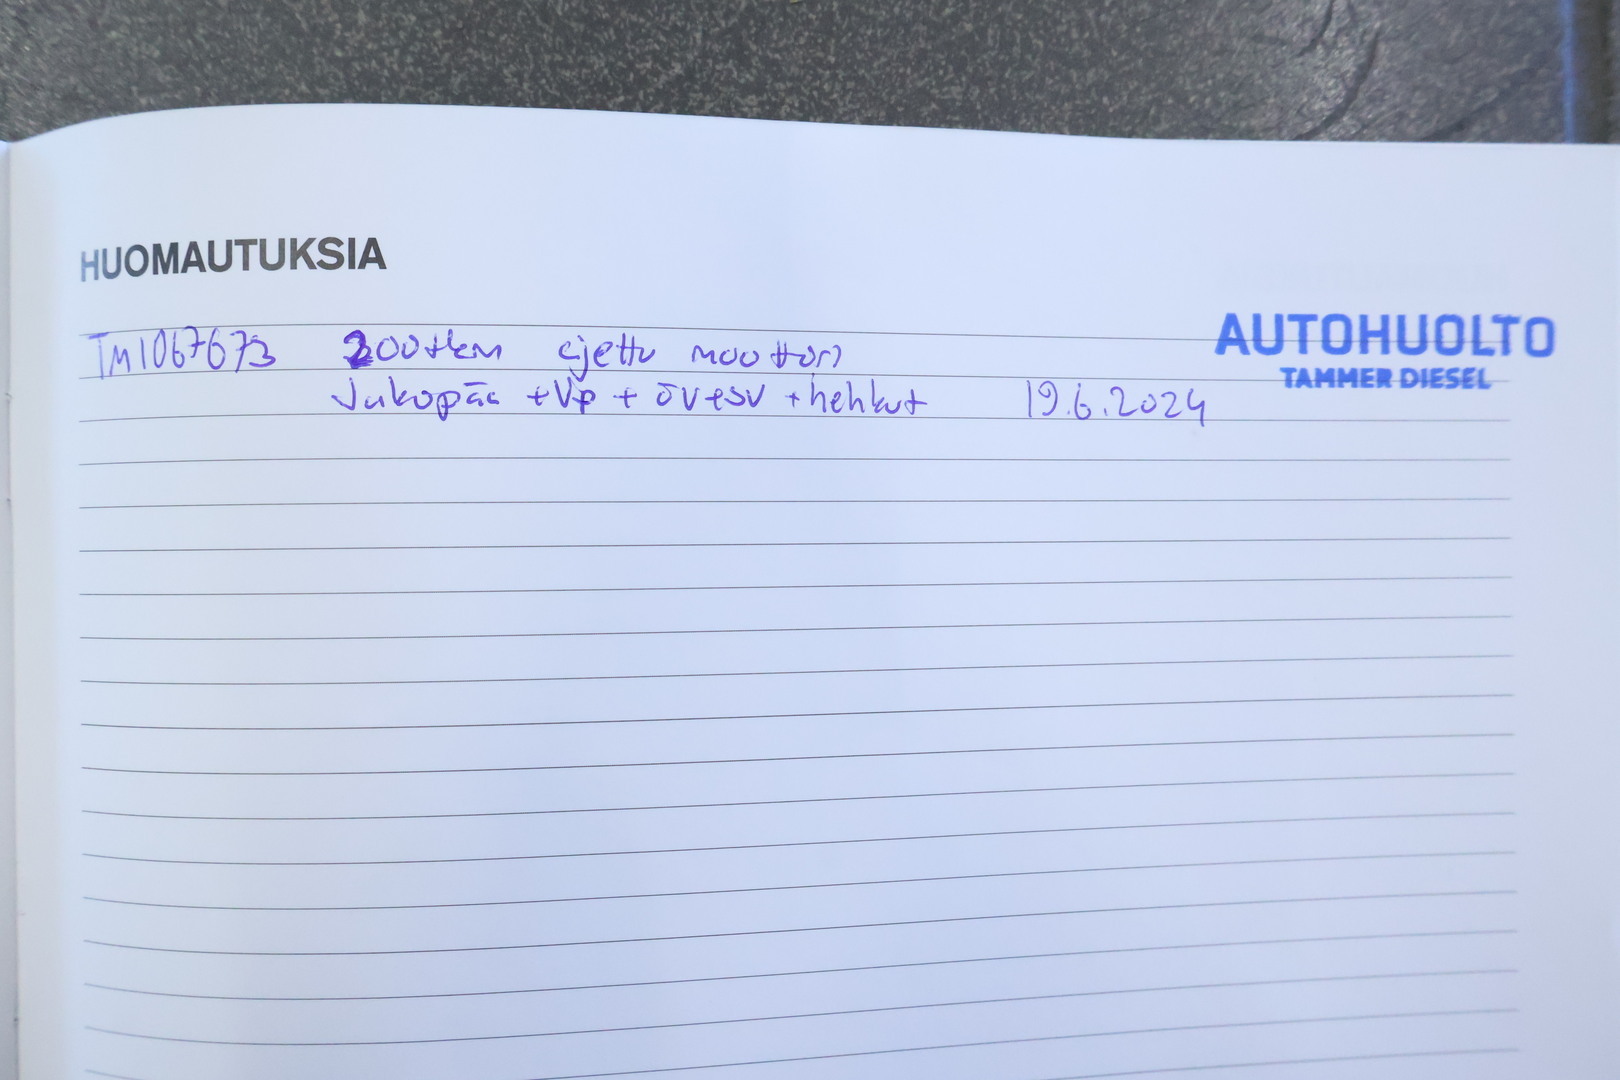 HUOMAUTUKSIA
AUTOHUOLTO
TAMMER DIESEL
TM1067673 200tkm ajettu moottori
Jakopää +Vp + öVesv + hehkut 19.6.2024